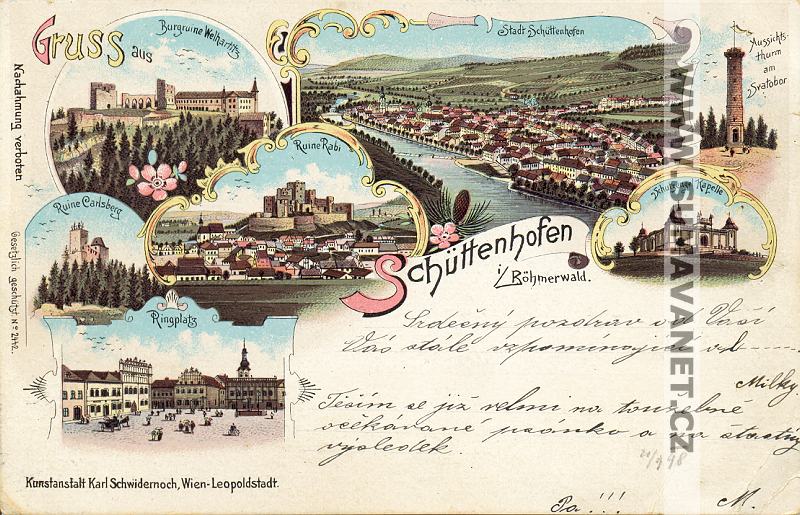 Gruss aus
Burgruine Welhartitz
Stadt Schüttenhofen
Aussichts-
thurm
am
Svatobor
Nachahmung verboten
Ruine Rabi
Ruine Carlsberg
Kapelle
Gesetzlich geschützt No 2442.
Schüttenhofen
i/ Böhmerwald.
Ringplatz
Srdečný pozdrav od Vaší
Vás stále vzpomínající
Milky.
Těším se již velmi na toužebně
očekávané psaníčko a na šťastný
výsledek.
Pa!!! M.
Kunstanstalt Karl Schwidernoch, Wien-Leopoldstadt.
www.sumavanet.cz